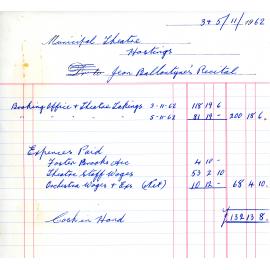 3 & 5/11/1962
Municipal Theatre
Hastings
Jean Ballantyne's Recital
Booking Office & Theatre Takings 3-11-62 118 19 6
" " " " 5-11-62 81 19 - 200 18 6.
Expenses Paid
Foster Brooks A/c 4 10 -
Theatre Staff Wages 53 2 10
Orchestra Wages & Exs (Net) 10 12 - 68 4 10.
Cash in Hand £132 13 8.